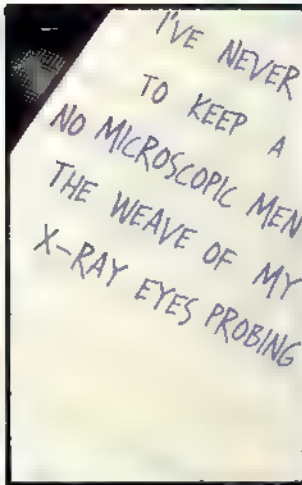 I'VE NEVER
TO KEEP A
NO MICROSCOPIC MEN
THE WEAVE OF MY
X-RAY EYES PROBING